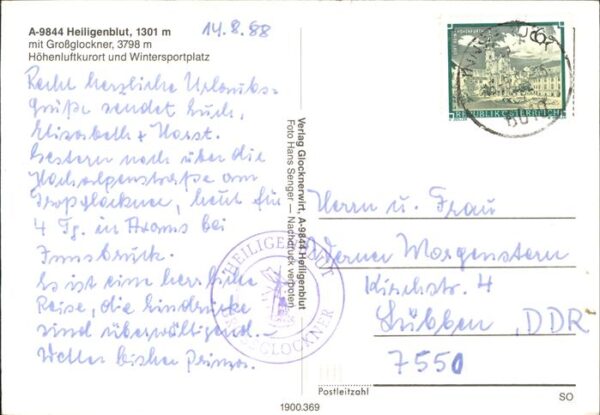 A-9844 Heiligenblut, 1301 m
mit Großglockner, 3798 m
Höhenluftkurort und Wintersportplatz
14.8.88
Recht herzliche Urlaubs-
Grüße sendet Euch,
Elisabeth + Horst.
Gestern noch über die
Hochalpenstraße am
Großglockner, heut für
4 Tg. in Axams bei
Innsbruck.
Es ist eine herrliche
Reise, die Eindrücke
sind überwältigend.
Wetter bisher Prima.
HEILIGENBLUT
GROSSGLOCKNER
Verlag Glocknerwirt, A-9844 Heiligenblut
Foto Hans Senger — Nachdruck verboten
REPUBLIK ÖSTERREICH
Herrn u. Frau
Werner Morgenstern
Kirchstr. 4
Lübben, DDR
7550
Postleitzahl
SO
1900.369